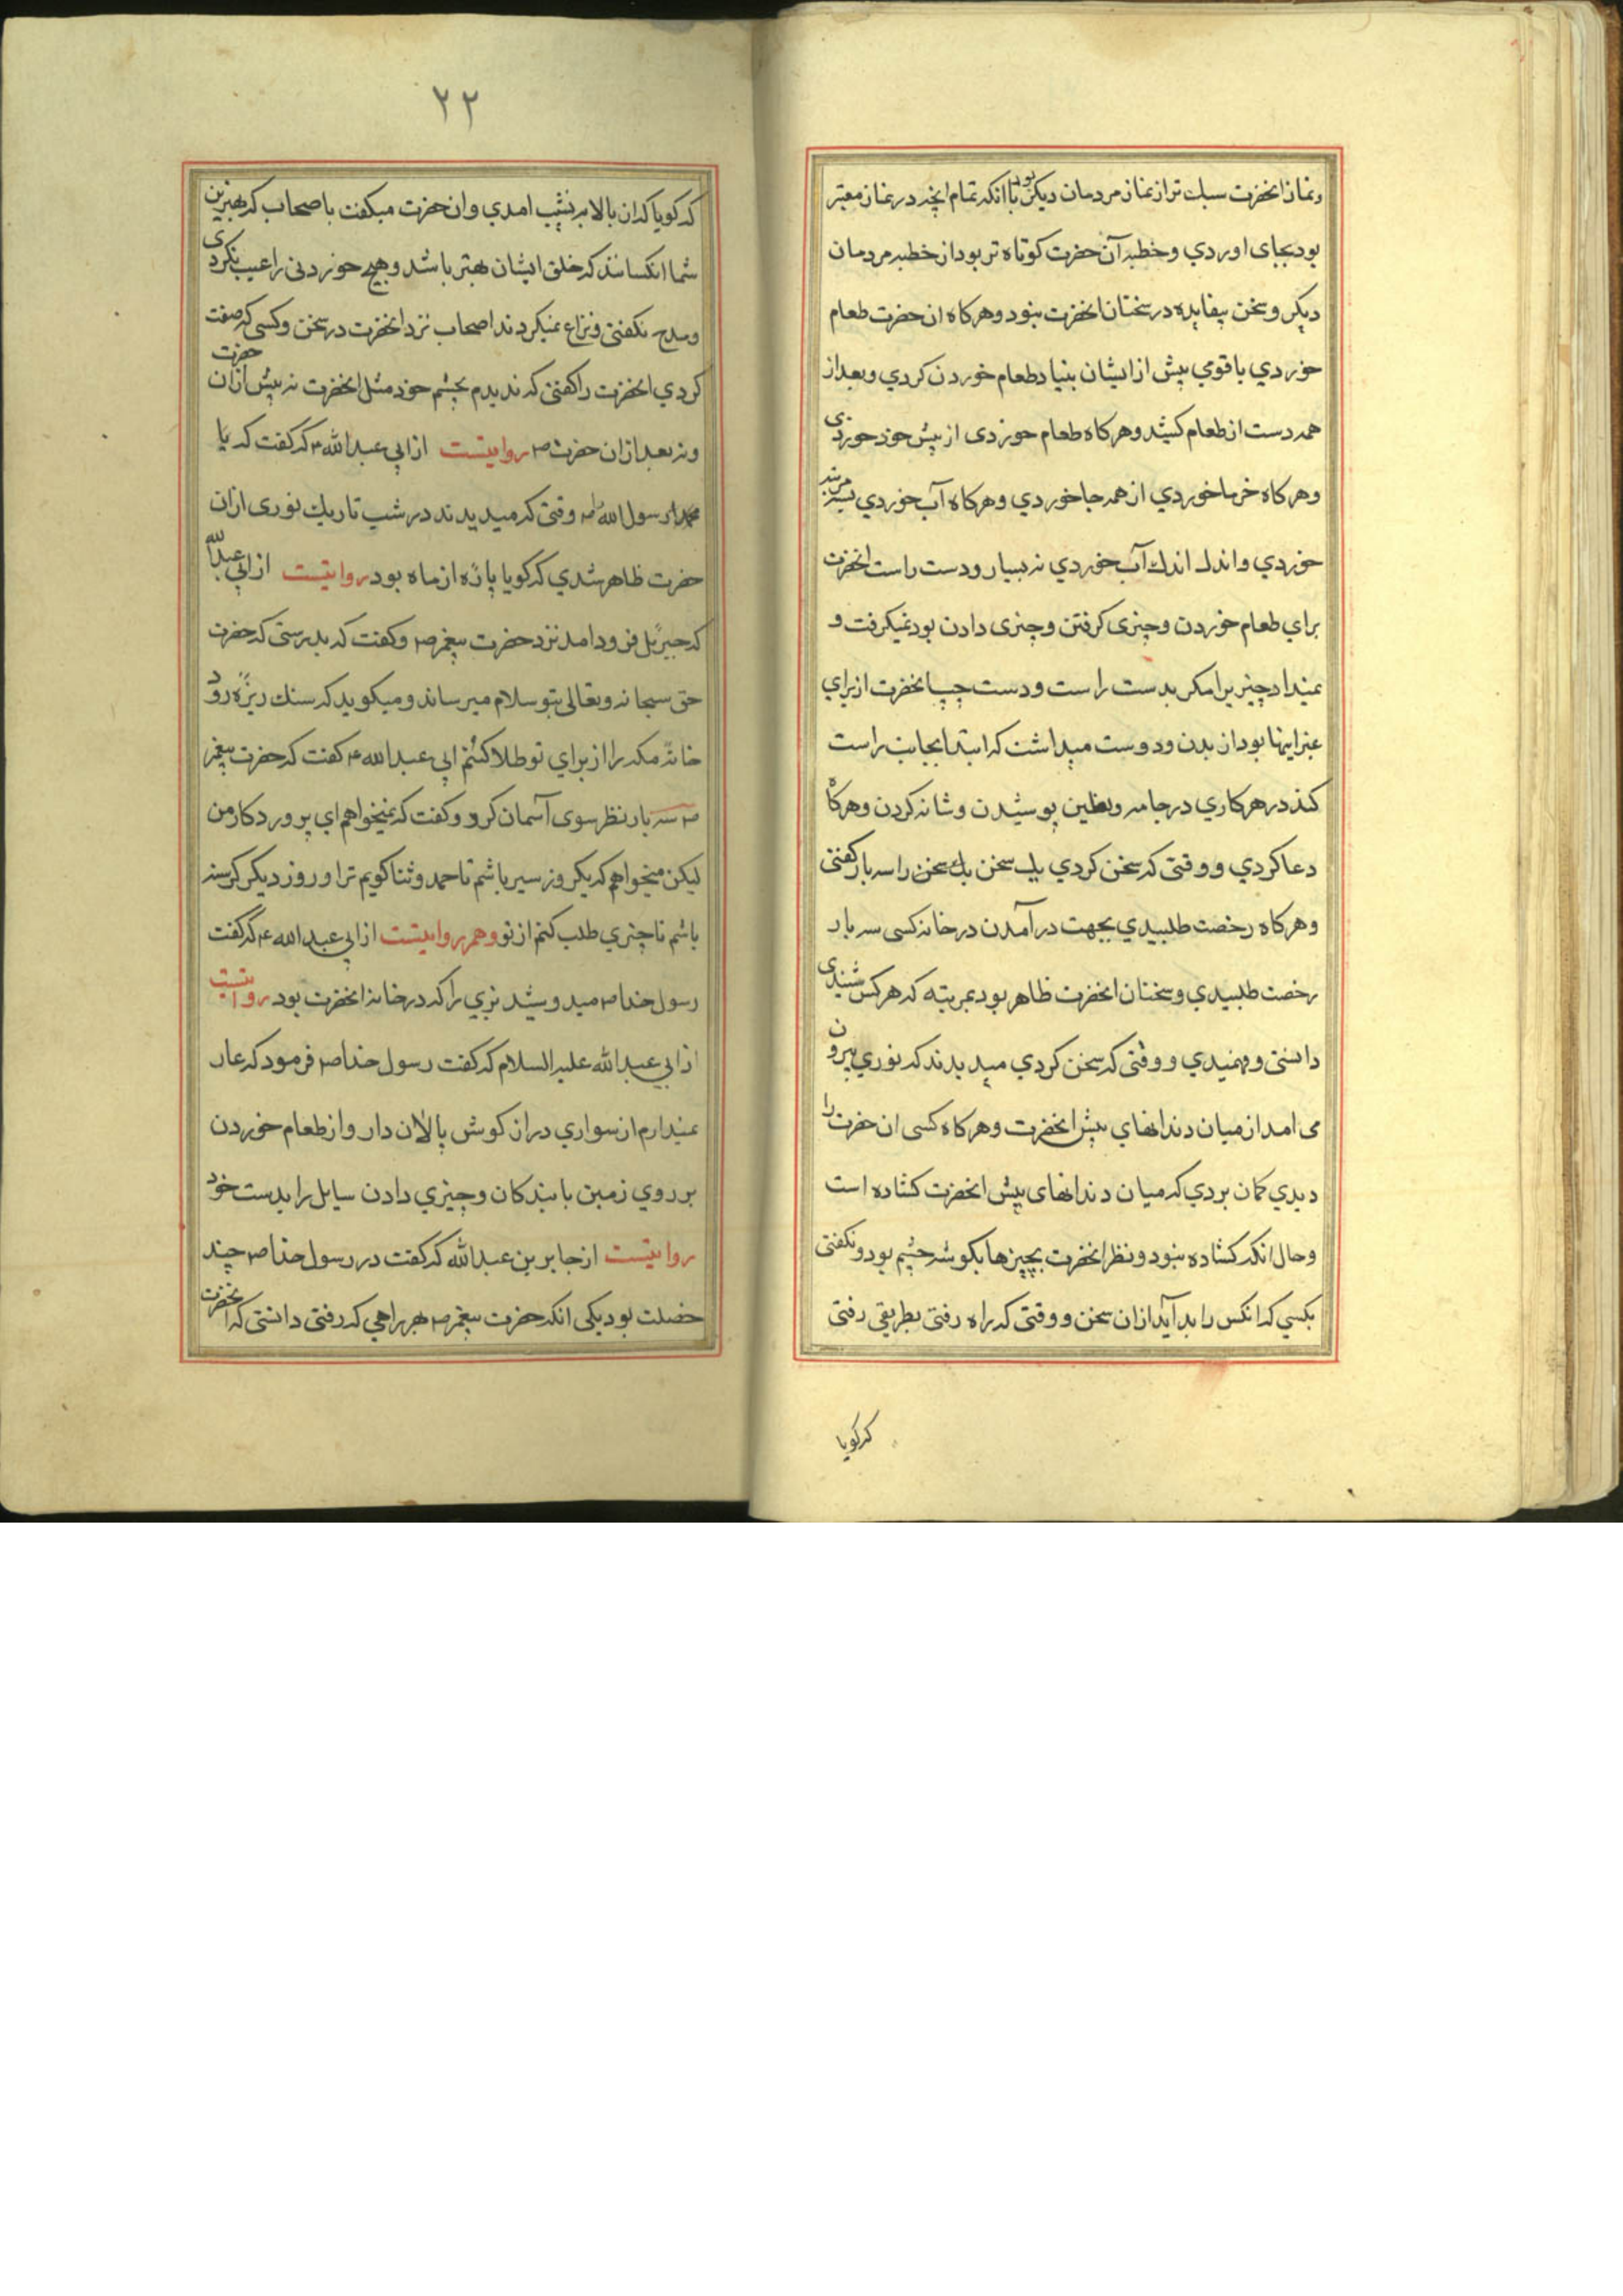 ونماز انحضرت سبك تر از نماز مردمان ديكر بود با انكه تمام انچه در نماز معتبر
بود بجاى اوردي وخطبه آن حضرت كوتاه تر بود از خطبه مردمان
ديكر وسخن بيفايده در سخنان انحضرت نبود وهركاه ان حضرت طعام
خوردي با قومي پيش از ايشان بنياد طعام خوردن كردي وبعد از
همه دست از طعام كشيد وهركاه طعام خوردى از پيش خود خوردى
وهركاه خرما خوردي از همه جا خوردي وهركاه آب خوردي بسه مرتبه
خوردي واندك اندك آب خوردي نه بسيار ودست راست انحضرت
براي طعام خوردن وچيزى كرفتن وچيزى دادن بود نميكرفت و
نميداد چيزيرا مكر بدست راست ودست چپ انحضرت از براي
غير اينها بود از بدن ودوست ميداشت كه ابتدا بجانب راست
كند در هر كاري در جامه ونعلين پوشيدن وشانه كردن وهركاه
دعا كردي ووقتى كه سخن كردي يك سخن يك سخن را سه بار كفتى
وهركاه رخصت طلبيدي بجهت در آمدن در خانه كسى سه بار
رخصت طلبيدي وسخنان انحضرت ظاهر بود بمرتبه كه هركس شنيدى
دانستى وفهميدي ووقتى كه سخن كردي ميديدند كه نوري بيرون
مى امد از ميان دندانهاي پيش انحضرت وهركاه كسى ان حضرت را
ديدي كمان بردي كه ميان دندانهاى پيش انحضرت كشاده است
وحال انكه كشاده نبود ونظر انحضرت بچيزها بكوشه چشم بود ونكفتى
بكسي كه انكس را بد آيد از ان سخن ووقتى كه راه رفتى بطريقى رفتى
كه كويا
٢٢
كه كويا كه از بالا به نشيب امدي وان حضرت ميكفت با صحاب كه بهترين
شما انكسانند كه خلق ايشان بهتر باشد وهيچ خوردنى را عيب نكردى
ومدح نكفتى ونزاع نميكردند اصحاب نزد انحضرت در سخن وكسى كه صفت
كردي انحضرت را كفتى كه نديدم بچشم خود مثل انحضرت نه پيش از ان حضرت
ونه بعد از ان حضرت ص روايتست از ابي عبد الله ع كه كفت كه يا
محمد رسول الله ص وقتى كه ميديدند در شب تاريك نورى از ان
حضرت ظاهر شدي كه كويا پاره از ماه بود روايتست از ابي عبد الله
كه جبرئيل فرود امد نزد حضرت پيغمبر ص وكفت كه بدرستى كه حضرت
حق سبحانه وتعالى بتو سلام ميرساند وميكويد كه سنك ريزه رود
خانه مكه را از براي تو طلا كنم ابي عبد الله ع كفت كه حضرت پيغمبر
ص سه بار نظر سوى آسمان كرد وكفت كه نميخواهم اي پروردكار من
ليكن ميخواهم كه يكروز سير باشم تا حمد وثنا كويم ترا وروز ديكر كرسنه
باشم تا چيزي طلب كنم از تو وهم روايتست از ابي عبد الله ع كه كفت
رسول خدا ص ميدوشيد بزي را كه در خانه انحضرت بود روايتست
از ابي عبد الله عليه السلام كه كفت رسول خدا ص فرمود كه عار
نميدارم از سواري دراز كوش پالان دار واز طعام خوردن
بر روي زمين با بندكان وچيزي دادن سايل را بدست خود
روايتست از جابر بن عبد الله كه كفت در رسول خدا ص چند
خصلت بود يكى انكه حضرت پيغمبر ص بهر راهي كه رفتى دانستى كه انحضرت